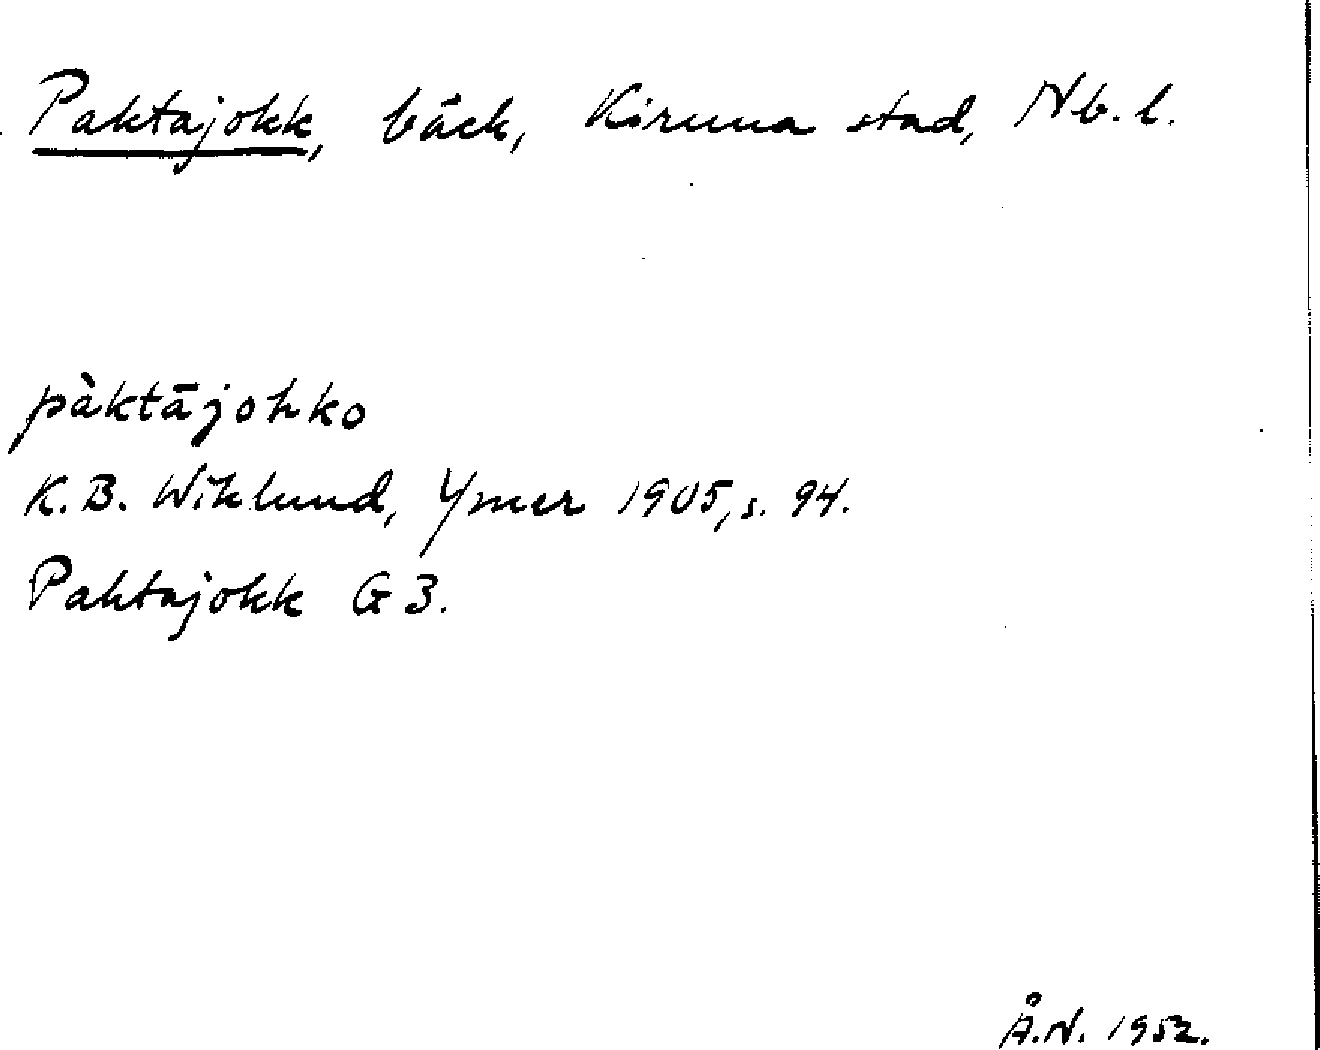 Paktajokk, bäck, Kiruna stad, Nb. l.
pàktājohko
K.B. Wiklund, Ymer 1905, s. 94.
Paktajokk G 3.
Å.N. 1952.